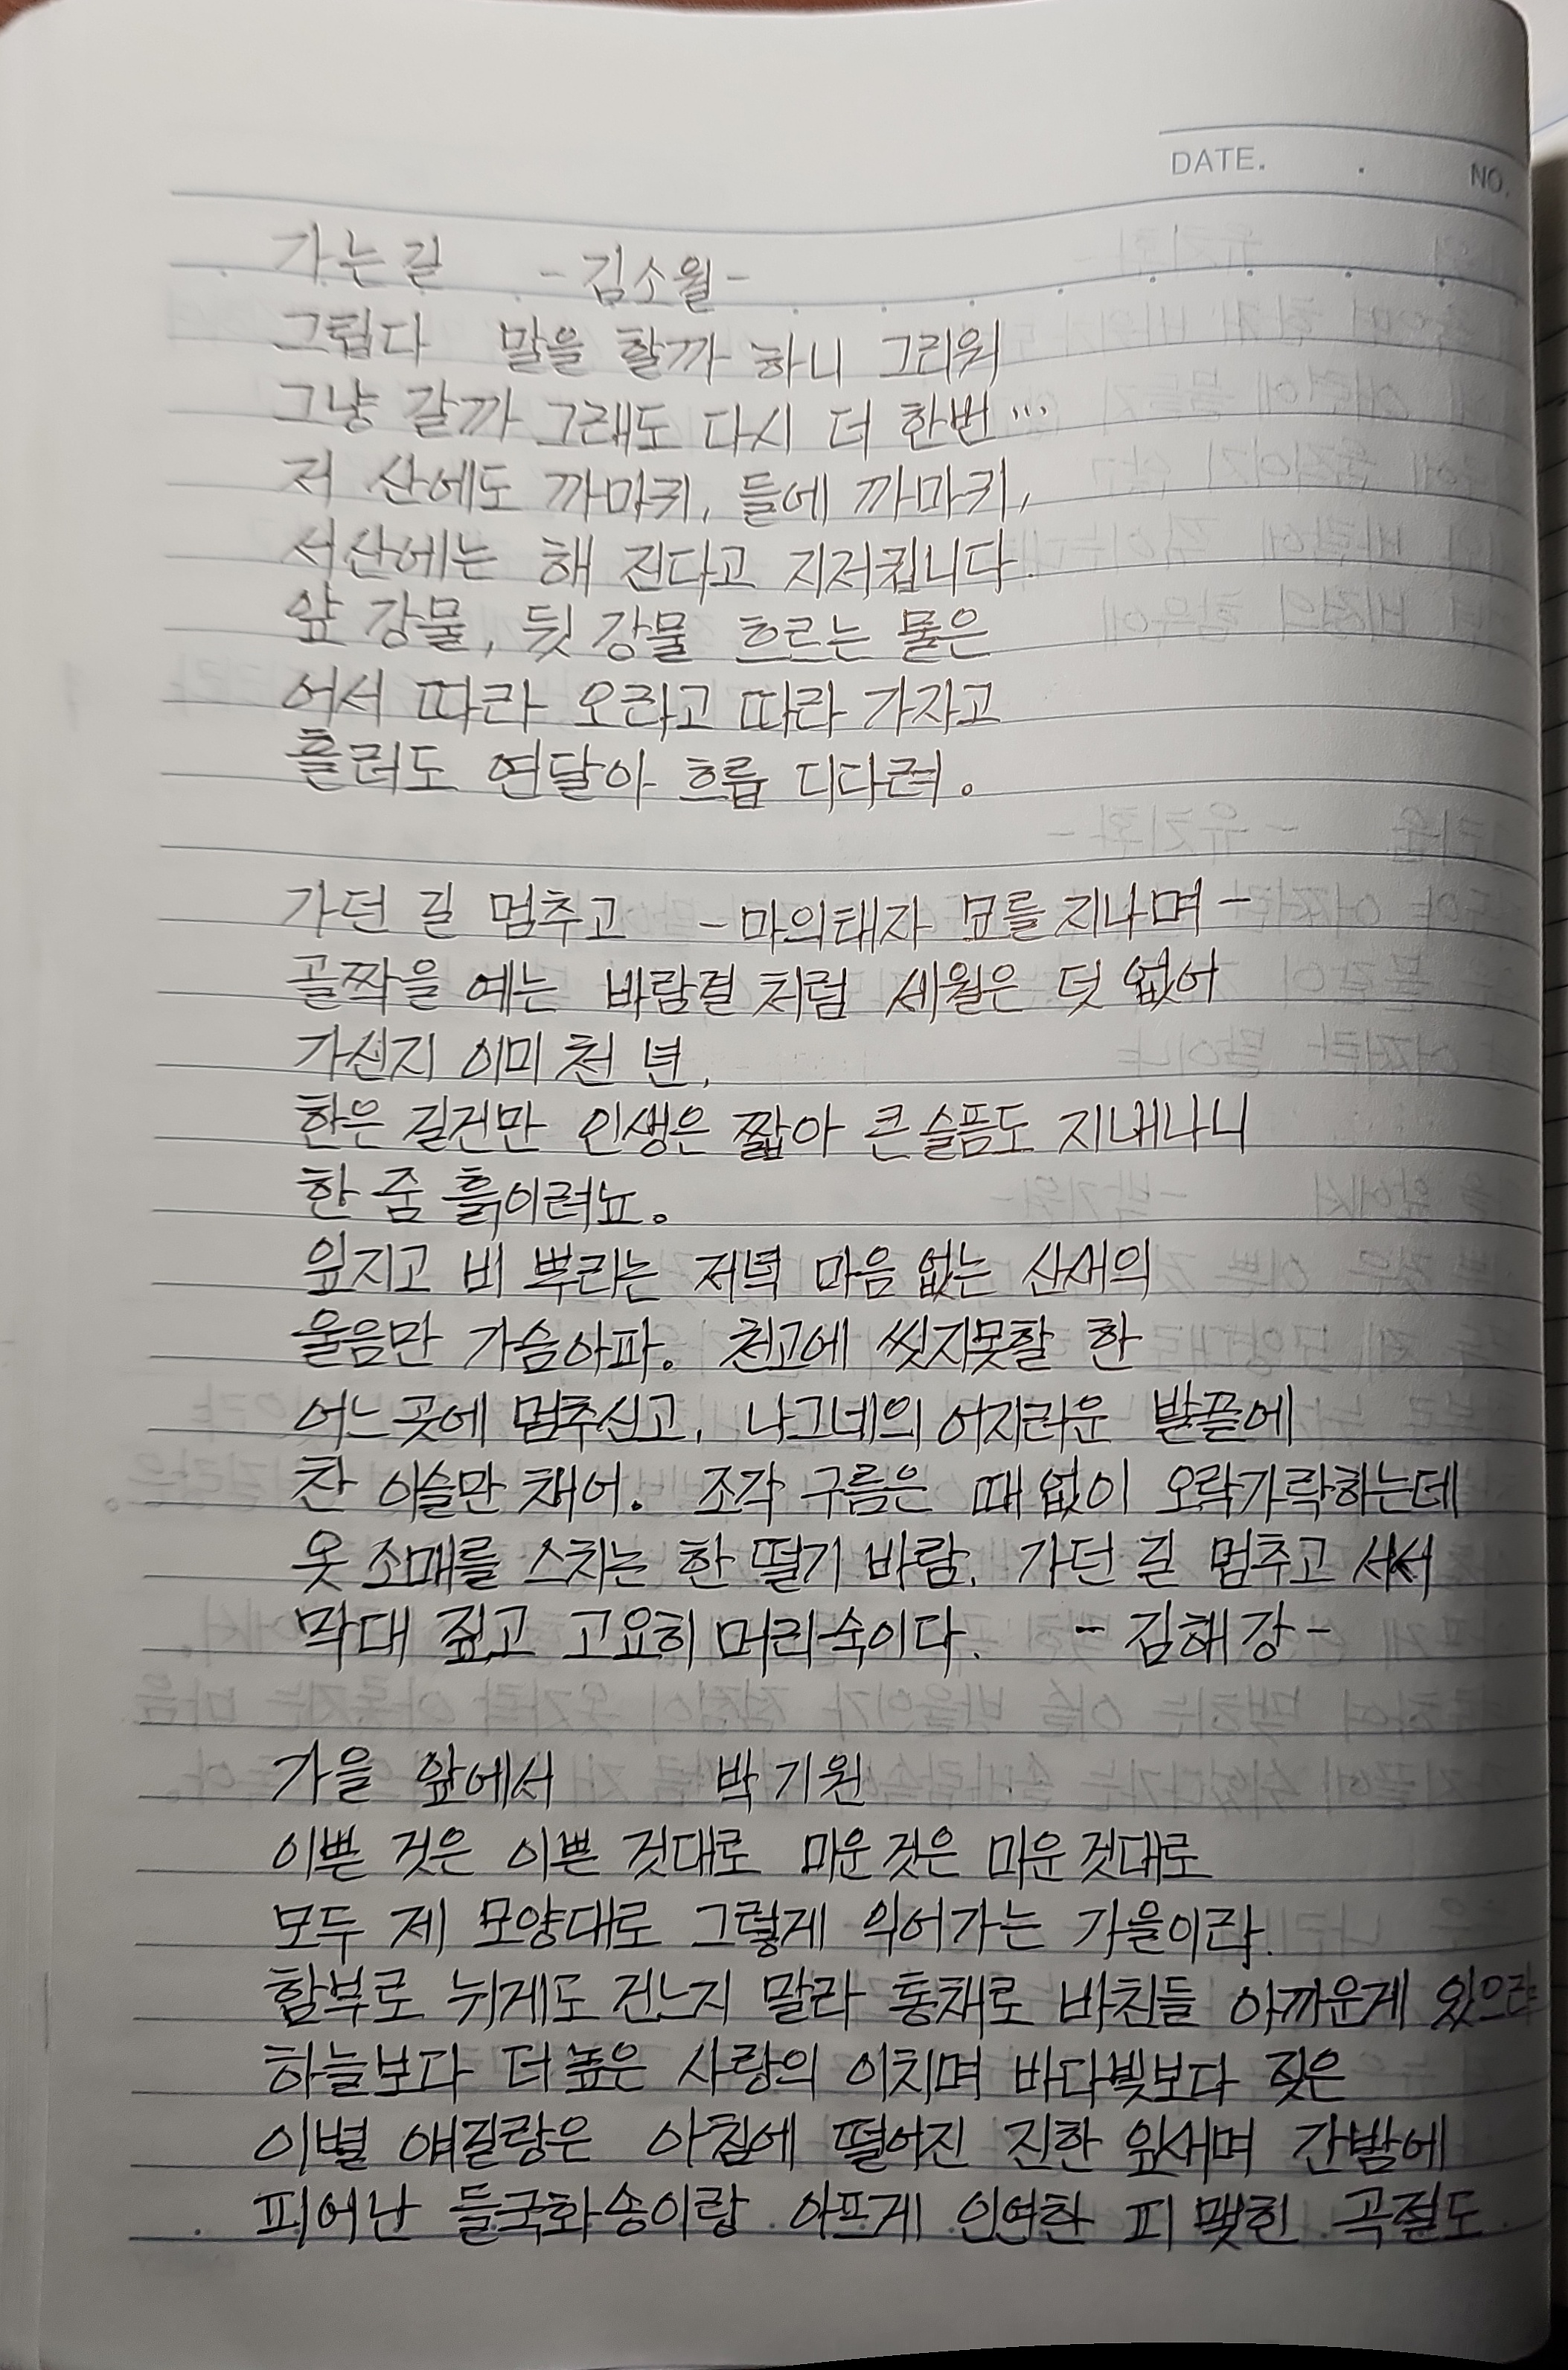 DATE. . NO.
가는길 -김소월-
그립다 말을 할까 하니 그리워
그냥 갈까 그래도 다시 더 한번…
저 산에도 까마귀, 들에 까마귀,
서산에는 해 진다고 지저귑니다.
앞 강물, 뒷 강물 흐르는 물은
어서 따라 오라고 따라 가자고
흘러도 연달아 흐릅 디다려.
가던 길 멈추고 -마의태자 묘를 지나며-
골짝을 예는 바람결처럼 세월은 덧 없어
가신지 이미 천 년,
한은 길건만 인생은 짧아 큰 슬픔도 지내나니
한 줌 흙이려뇨.
잎지고 비 뿌리는 저녁 마음 없는 산새의
울음만 가슴아파. 천고에 씻지못할 한
어느곳에 멈추신고, 나그네의 어지러운 발끝에
찬 이슬만 채어. 조각 구름은 때 없이 오락가락하는데
옷 소매를 스치는 한 떨기 바람. 가던 길 멈추고 서서
막대 짚고 고요히 머리숙이다. -김해강-
가을 앞에서 박기원
이쁜 것은 이쁜 것대로 미운것은 미운것대로
모두 제 모양대로 그렇게 익어가는 가을이라.
함부로 뉘게도 건느지 말라 통채로 바친들 아까운게 있으랴
하늘보다 더 높은 사랑의 이치며 바다빛보다 짖은
이별 얘길랑은 아침에 떨어진 진한 잎새며 간밤에
피어난 들국화송이랑 아프게 인연한 피 맺힌 곡절도